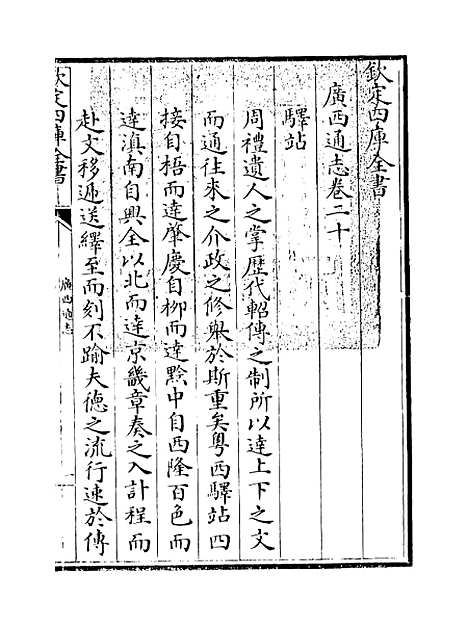 欽定四庫全書
廣西通志卷二十
驛站
周禮遺人之掌歷代軺傳之制所以達上下之文
而通往來之介政之修舉於斯重矣粤西驛站四
接自梧而達肇慶自柳而達黔中自西隆百色而
達滇南自興全以北而達京畿章奏之入計程而
赴文移遞送繹至而刻不踰夫德之流行速於傳
欽定四庫全書
廣西通志
一